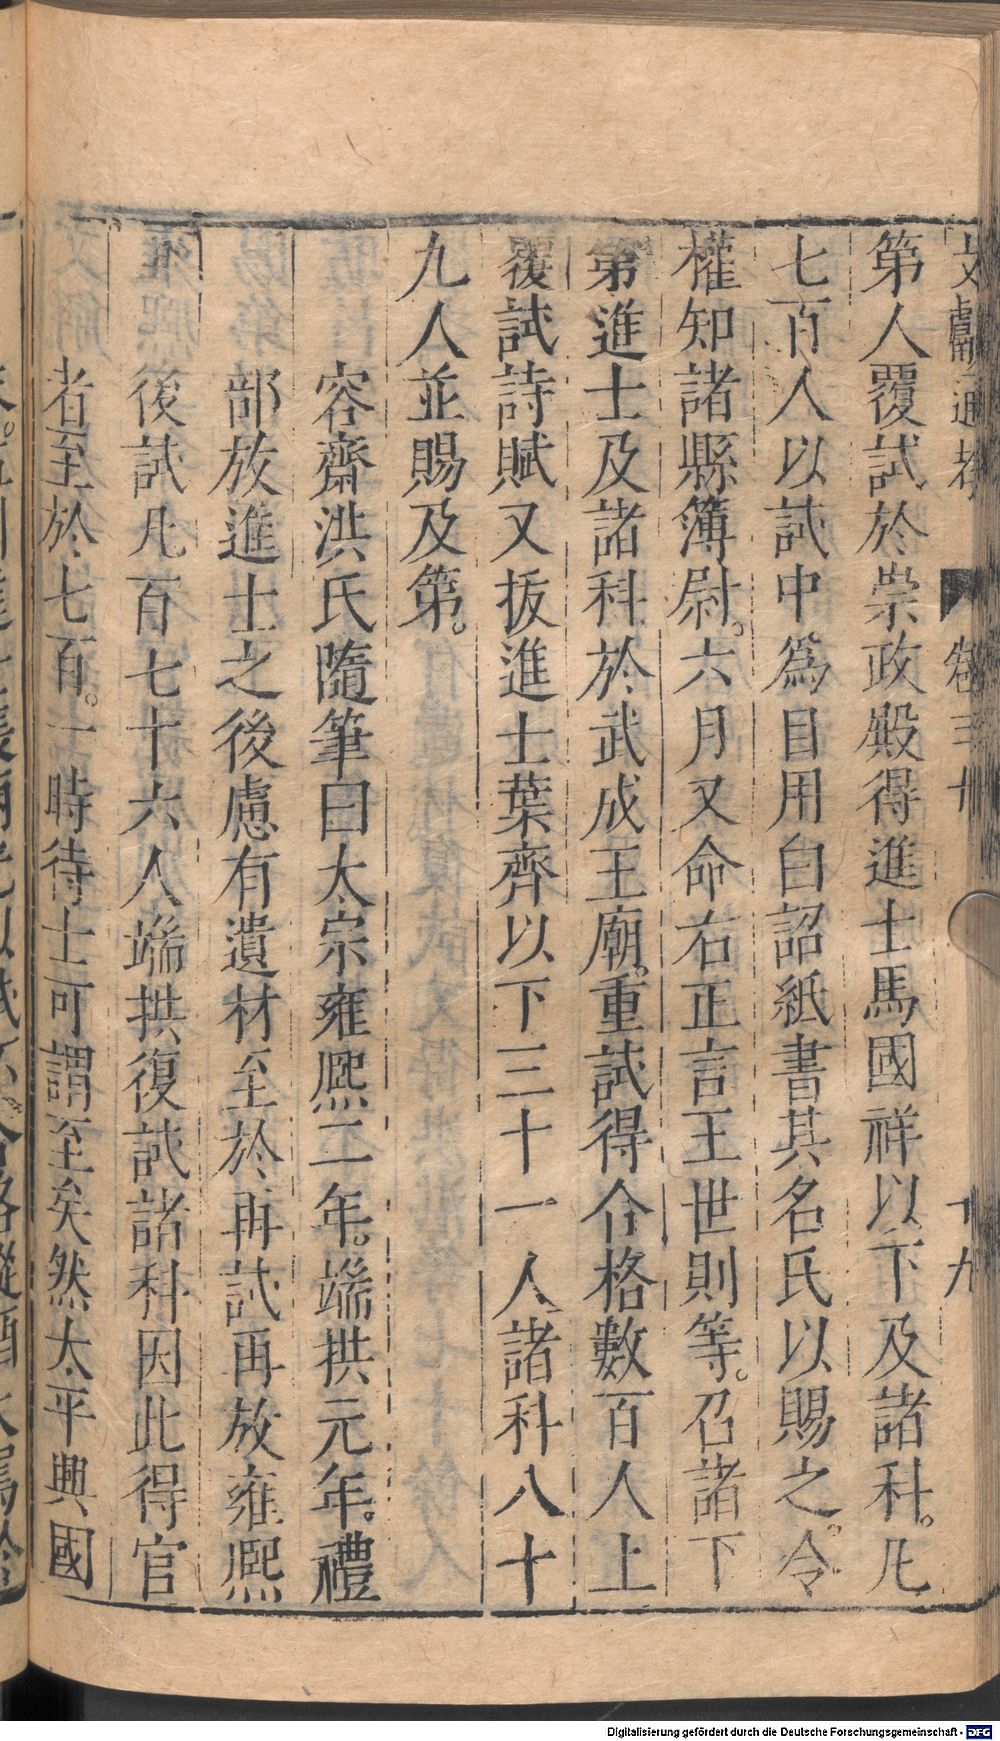 文獻通考 卷三十 十九
第人覆試於崇政殿得進士馬國祥以下及諸科。凡
七百人以試中爲目用白詔紙書其名氏以賜之。令
權知諸縣簿尉。六月又命右正言王世則等。召諸下
第進士及諸科於武成王廟。重試得合格數百人上
覆試詩賦又拔進士葉齊以下三十一人諸科八十
九人並賜及第。
容齋洪氏隨筆曰太宗雍熙二年。端拱元年。禮
部放進士之後慮有遺材至於再試再放雍熙
後試凡百七十六人端拱復試諸科因此得官
者至於七百。一時待士可謂至矣然太平興國
Digitalisierung gefördert durch die Deutsche Forschungsgemeinschaft - DFG